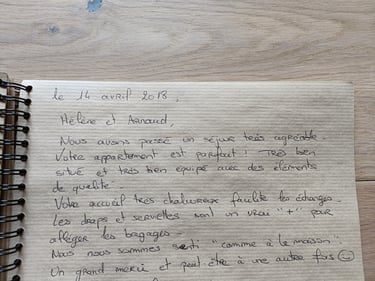 le 14 avril 2018,
Hélène et Arnaud,
Nous avons passé un séjour très agréable.
Votre appartement est parfait ! Très bien
situé et très bien équipé avec des éléments
de qualité.
Votre accueil très chaleureux facilite les échanges.
Les draps et serviettes sont un vrai "+" pour
alléger les bagages.
Nous nous sommes senti "comme à la maison".
Un grand merci et peut être à une autre fois ☺